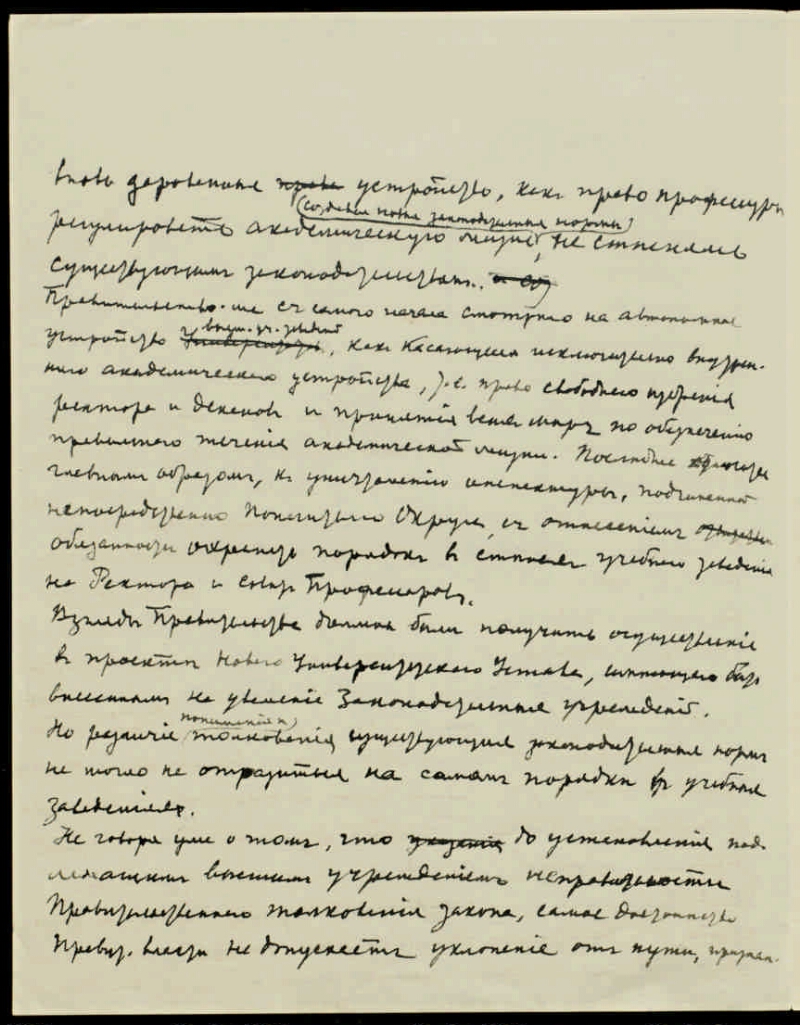 вновь дарованное право устройство, какъ право профессуры
(создавая новыя законодательныя нормы)
регулировать академическую жизнь, не стѣсняясь
существующимъ законодательствомъ.
Правительство-же съ самого начала смотрѣло на автономное
высш. уч. заведенiй
устройство Университета, какъ касающееся исключительно внутрен-
няго академическаго устройства, т.е. право свободнаго избранiя
ректора и декановъ и принятiя всѣхъ мѣръ по обезпеченiю
правильнаго теченiя академической жизни. Послѣднее
главнымъ образомъ, къ уничтоженiю инспектуры, подчиненной
непосредственно Попечителю Округа, съ отнесенiемъ
обязанности охранять порядокъ в стѣнахъ учебнаго заведенiя
на Ректора и Совѣтъ Профессоровъ.
Взгляды Правительства должны были получить осуществленiе
в проектѣ Новаго Университетскаго Устава, имѣющаго быть
внесеннымъ на уваженiе Законодательныхъ учрежденiй.
пониманiя и
Но различiе толкованiя существующихъ законодательныхъ нормъ
не могло не отразиться на самомъ порядкѣ в учебныхъ
заведенiяхъ.
Не говоря уже о томъ, что указанiя до установленiя над-
лежащимъ высшимъ учрежденiемъ неправильности
Правительственнаго толкованiя закона, самое достоинство
Правит. власти не допускаетъ уклоненiе отъ пути, признан.